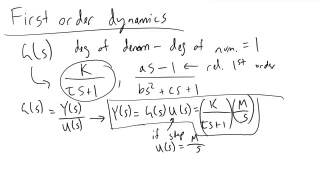 First order dynamics
G(s) deg of denom - deg of num. = 1
K / (τs+1) , (as-1) / (bs²+cs+1) ← rel. 1st order
G(s) = Y(s)/U(s) → Y(s) = G(s)U(s) = (K/(τs+1))(M/s)
if step
U(s) = M/s